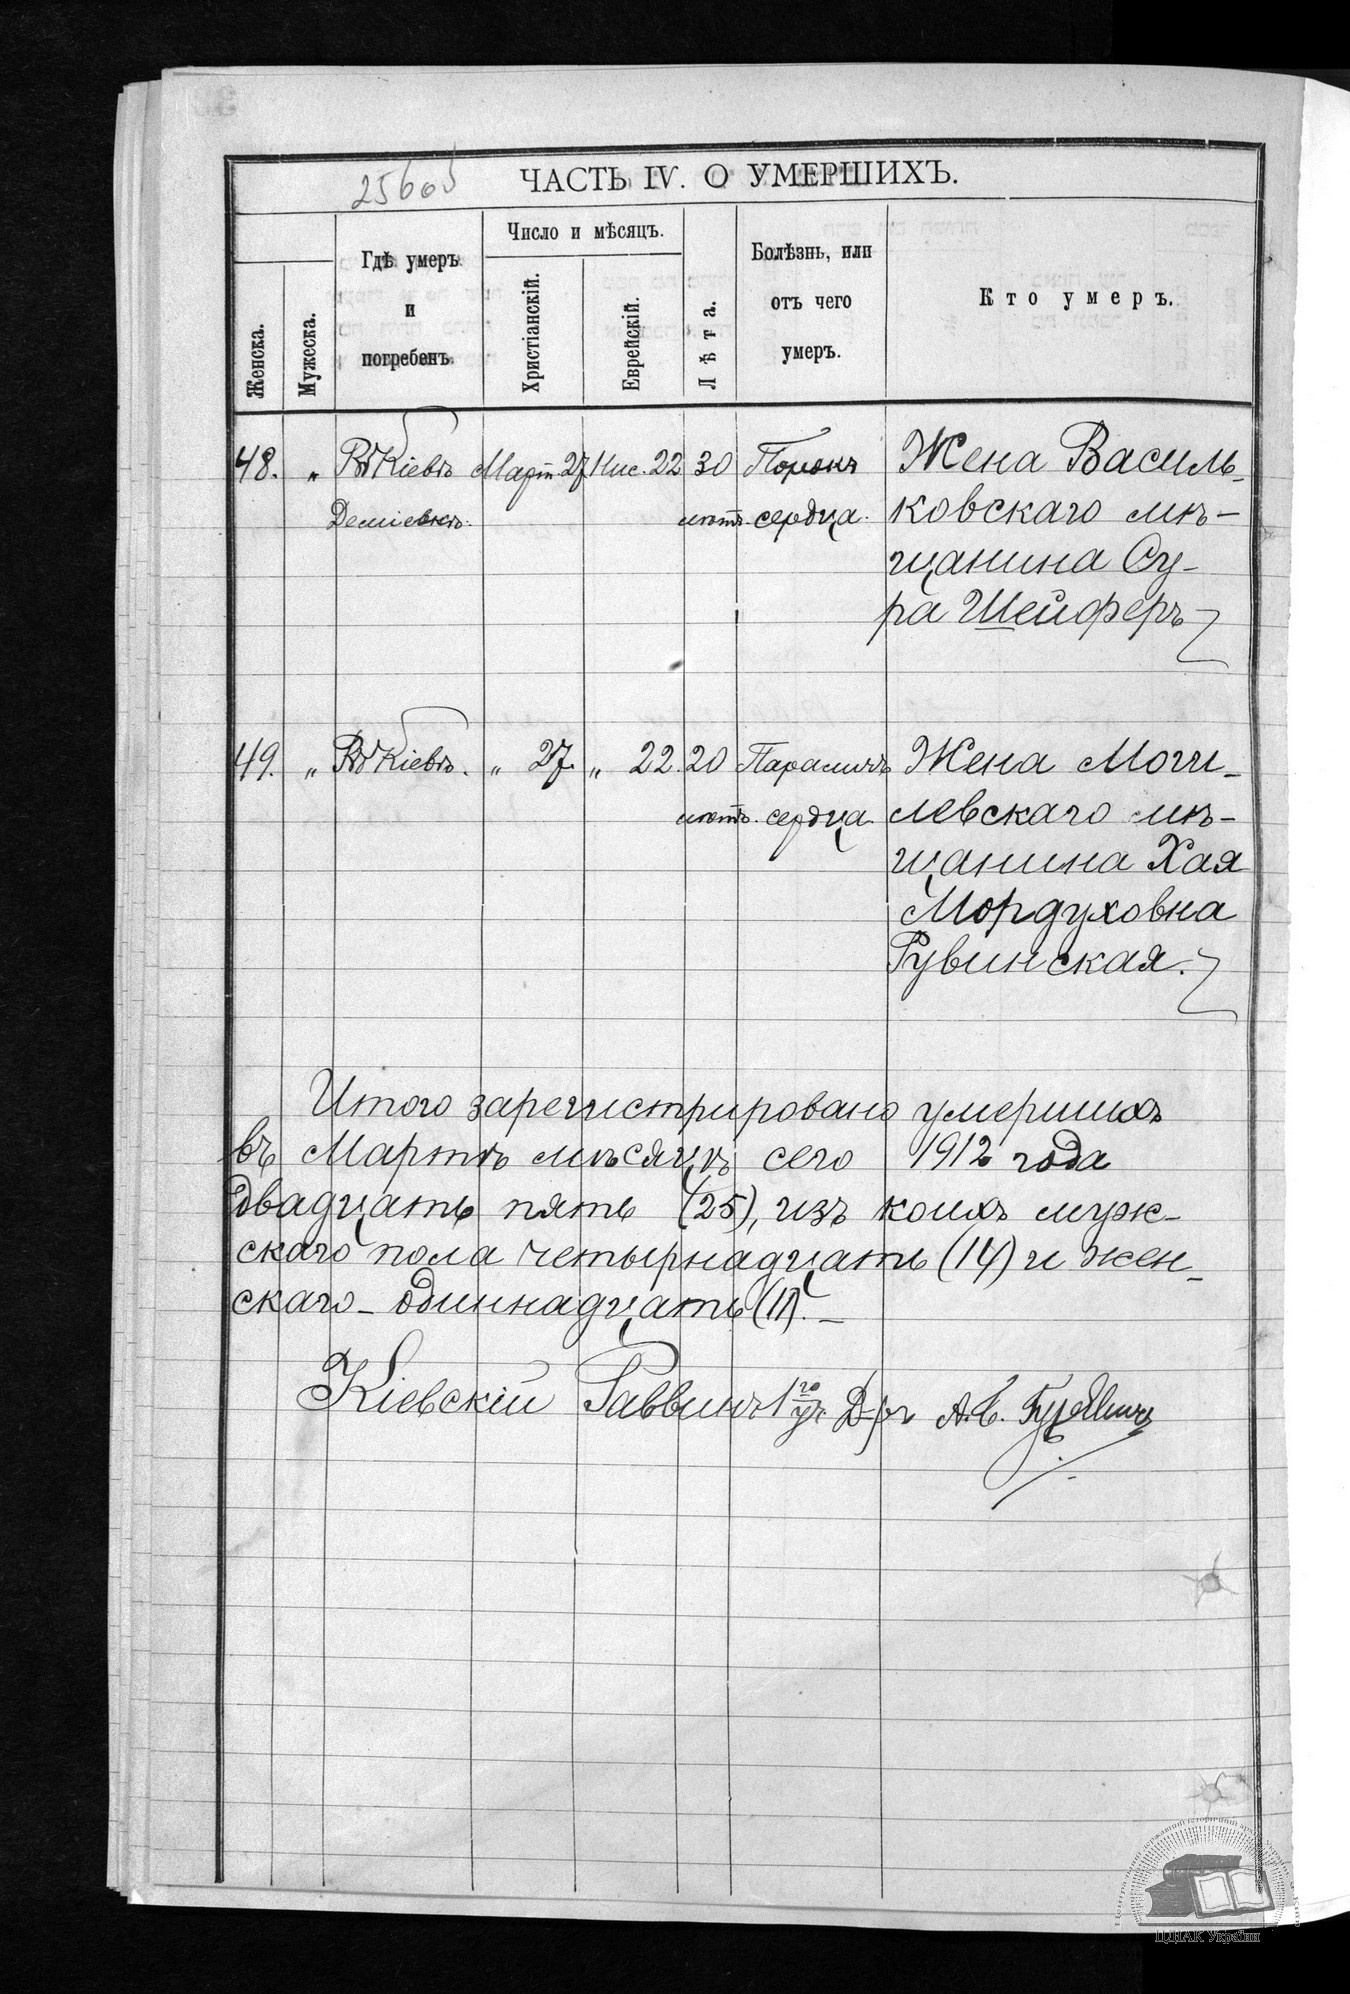 ЧАСТЬ IV. О УМЕРШИХЪ.
Женска.
Мужеска.
Гдѣ умеръ
и
погребенъ
Число и мѣсяцъ.
Христіанскій.
Еврейскій.
Лѣта.
Болѣзнь, или
отъ чего
умеръ.
Кто умеръ.
48. „ Въ Кіевѣ Март. 27. Нис. 22 30 Порокъ Жена Василь-
Деміевкѣ. лѣтъ. сердца. ковскаго мѣ-
щанина Су-
ра Шейферъ
49. „ Въ Кіевѣ. „ 27. „ 22. 20 Параличъ Жена Моги-
лѣтъ. сердца. левскаго мѣ-
щанина Хая
Мордуховна
Рувинская.
Итого зарегистрировано умершихъ
въ Мартѣ мѣсяцѣ сего 1912 года
двадцать пять (25), изъ коихъ муж-
скаго пола четырнадцать (14) и жен-
скаго - одиннадцать (11). -
Кіевскій Раввинъ 1го уч. Д-ръ А.Б. Гуревичъ
ЦДІАК України